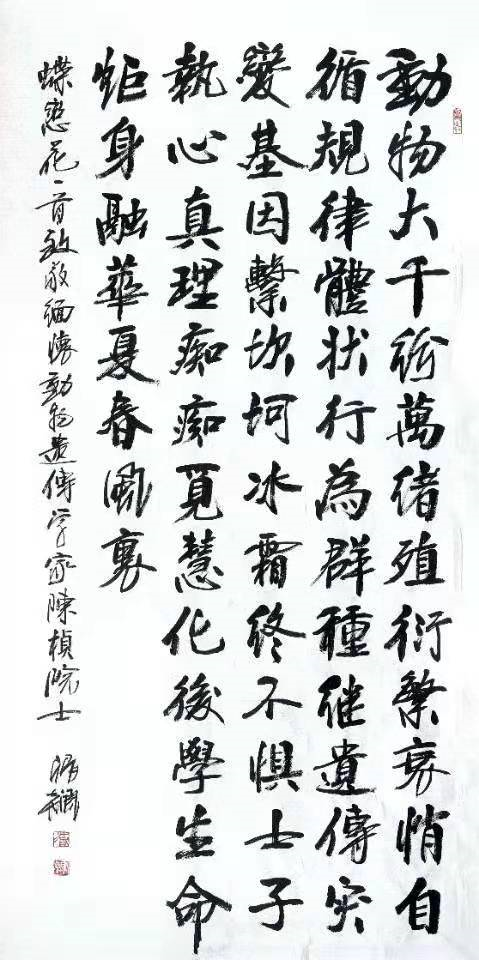 動物大千紛萬緒殖衍繁衰悄自
循規律體狀行為群種継遺傳突
變基因繫坎坷冰霜終不懼士子
執心真理痴痴覓慧化後學生命
鉅身融華夏春風裏
蝶戀花一首致敬緬懷動物遺傳學家陳楨院士